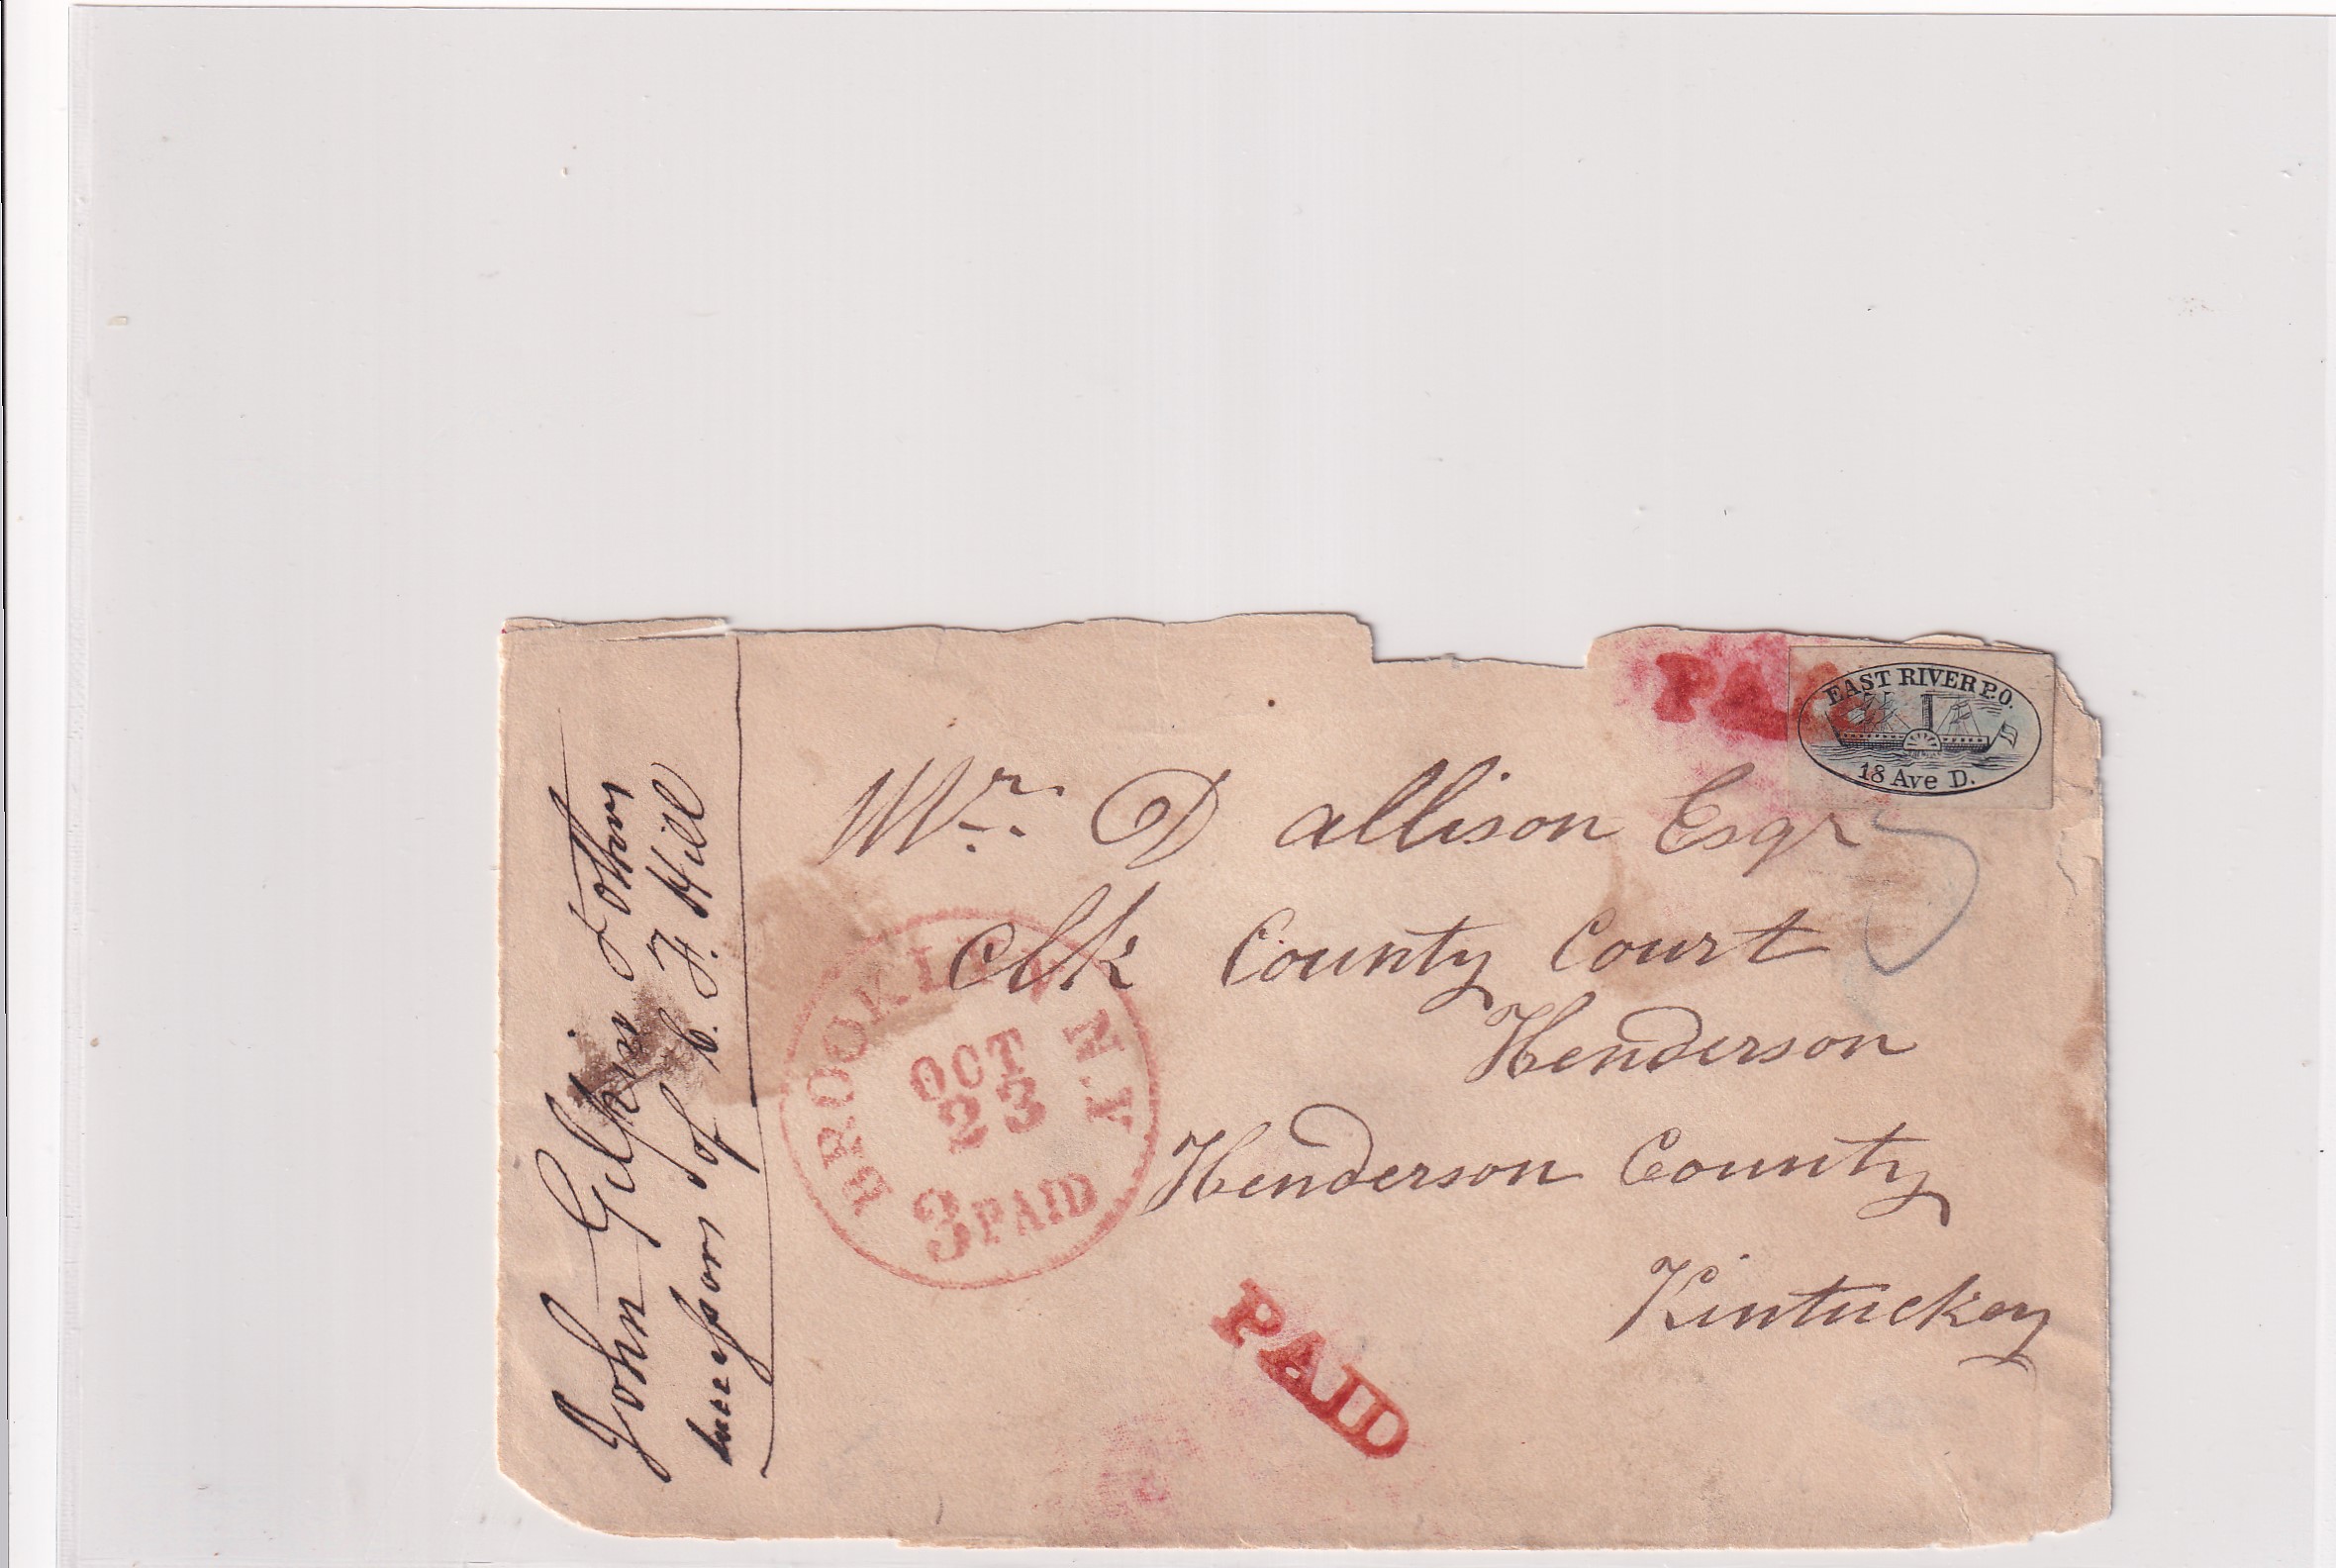 John Gilpin & others
successors of C. F. Hill
PAID
EAST RIVER P.O.
18 Ave D.
Mr. D allison Esqr
Clk County Court
Henderson
Henderson County
Kintuckey
BROOKLYN N Y
OCT
23
3 PAID
PAID